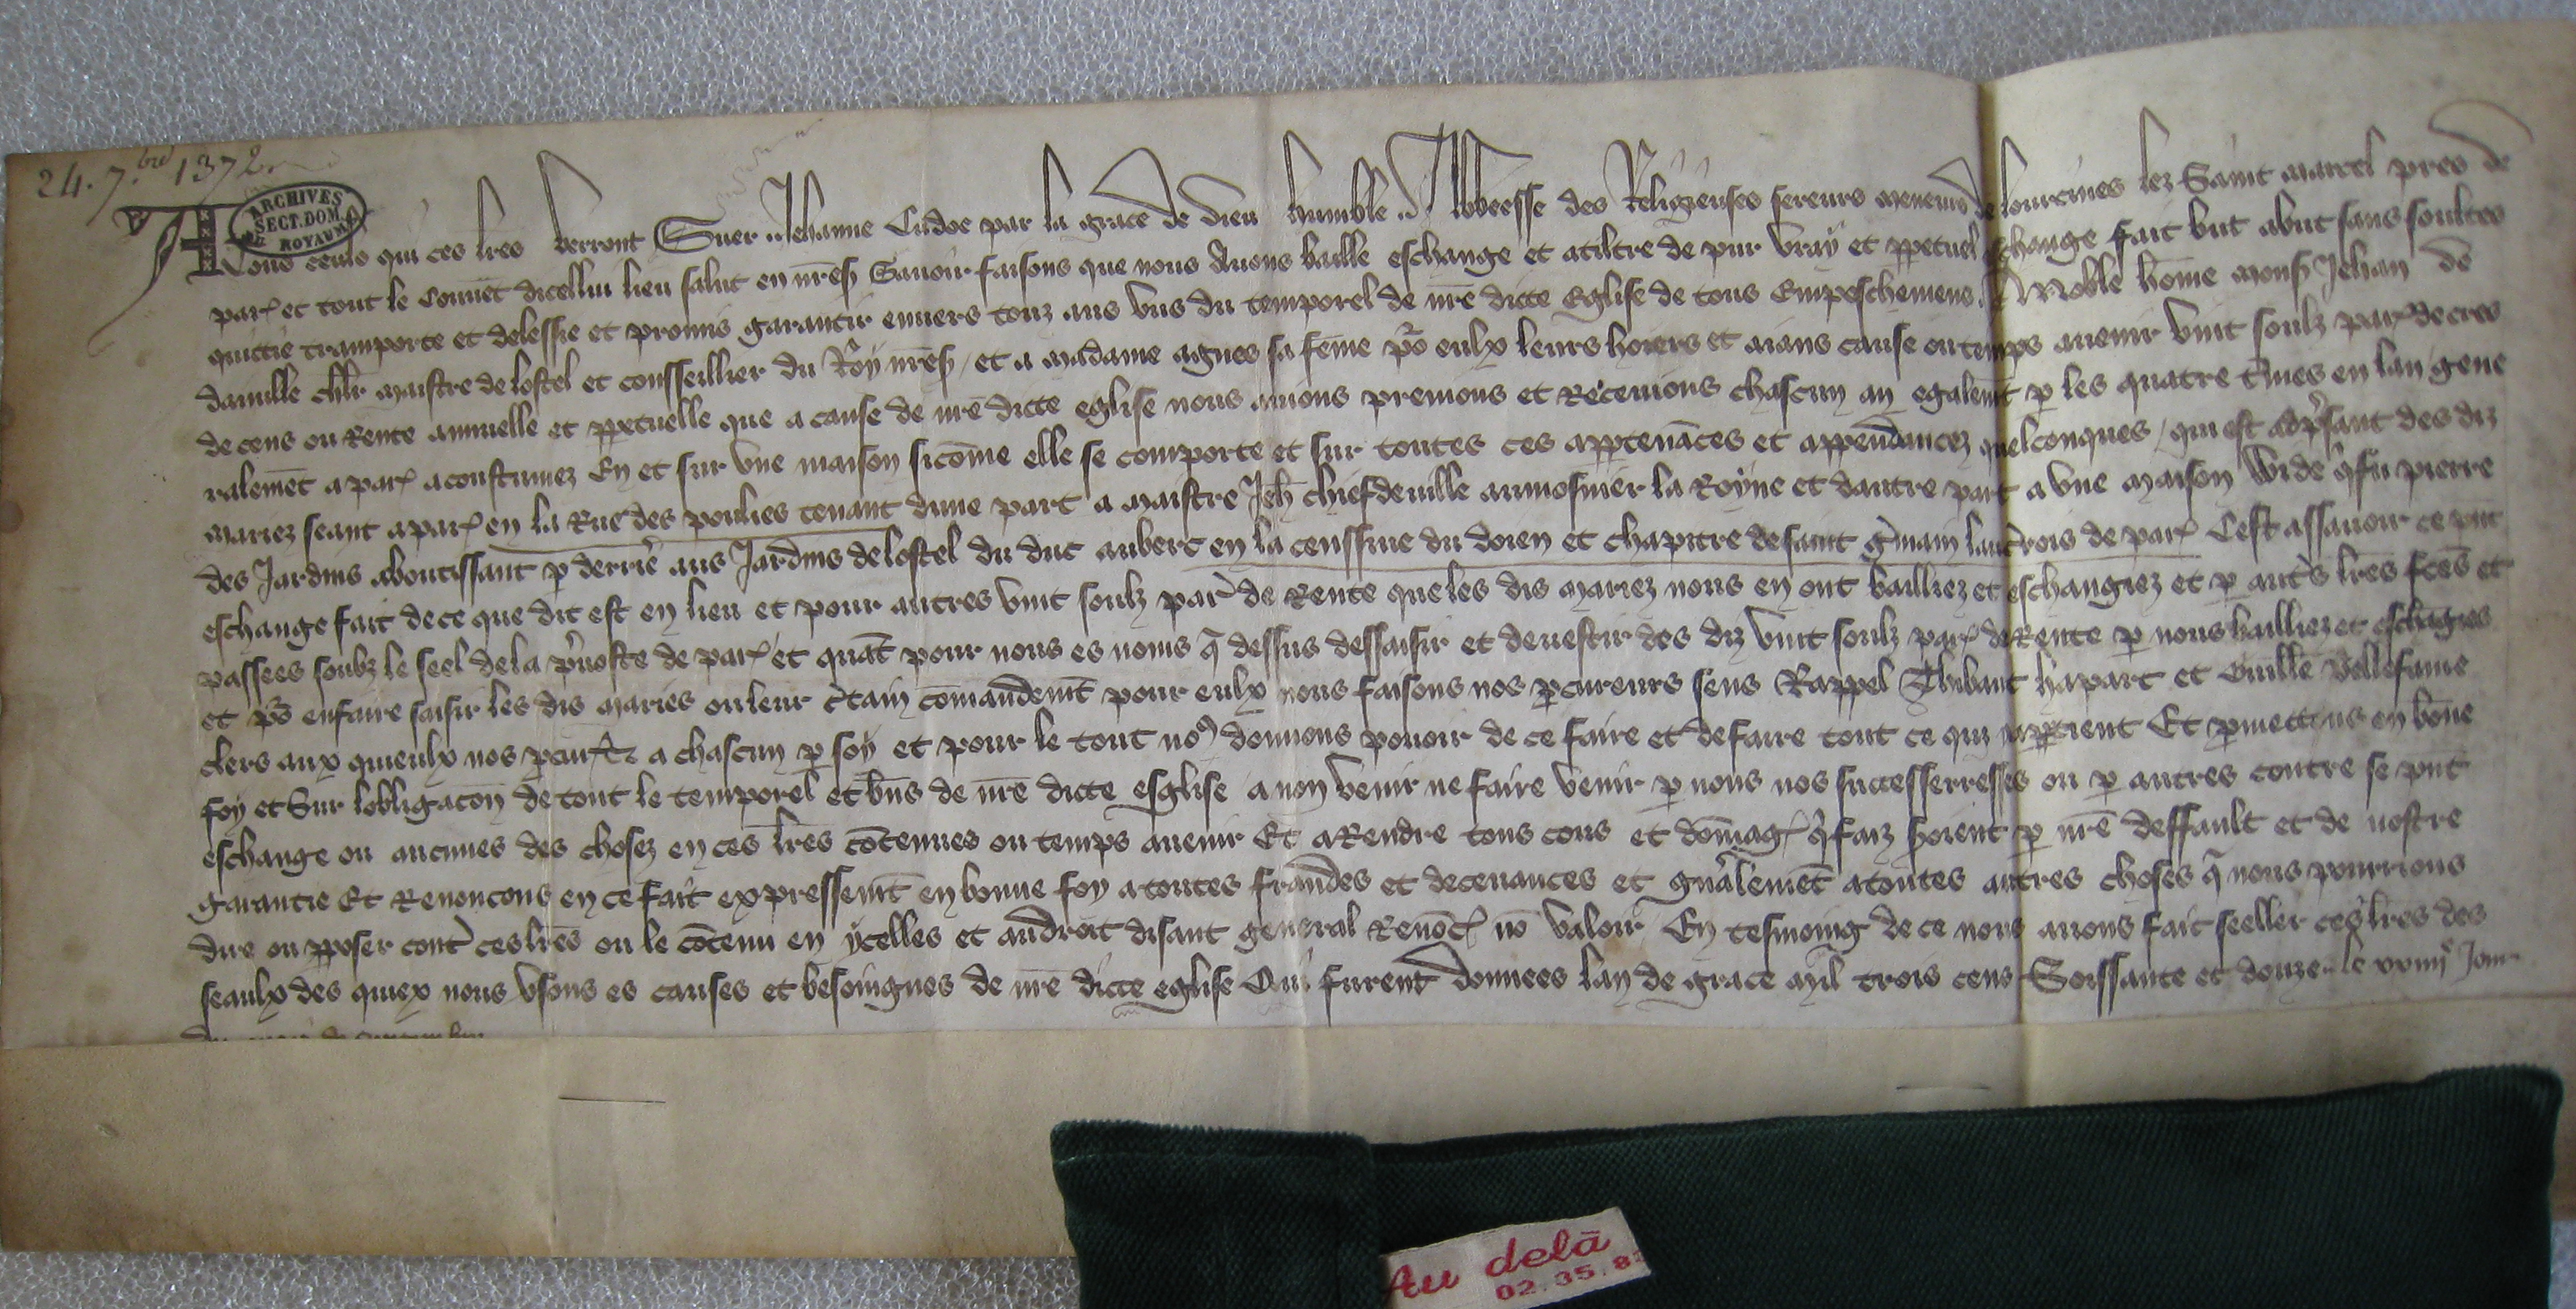 24. 7.bre 1372
ARCHIVES
SECT. DOM.
DU ROYAUME
A Touz ceulx qui ces lres verront Suer Jehanne par la grace de dieu humble Abbeesse des Religieuses sereurs meneurs de lourcines lez Saint marcel pres de
par et tout le Couuēt dicellui lieu salut en nrēs Sauoir faisons que nous Auons baille eschange et atiltre de pur vray et ppetuel eschange fait but abut sans soultes
quittie transporte et delessie et promis garantir enuers touz aus vus du temporel de nrē dicte Eglise de tous Empeschemens A Noble hōme mons Jehan de
dainille chlr maistre de lostel et consseillier du Roy nrēs et a madame agnes sa fēme po eulx leurs hoiers et aians cause ou temps auenir vint soulz par de cres
de cens ou Rente annuelle et ppetuelle que a cause de nrē dicte eglise nous auions prenions et Receuions chascun an egalemt p les quatre tmes en lan gene
ralemēt a par acoustumez En et sur vne maison sicōme elle se comporte et sur toutes ces apptenāces et appendancez quelconques qui est adpsant des diz
mariez seant a par en la Rue des poulies tenant dune part a maistre Jeh chiefdeuille aumosnier la Royne et dautre part a vne maison wide qfu pierre
des Jardins aboutissant p derrie aus Jardins de lostel du duc aubert en la censsiue du doien et chapitre de saint gmain laucrois de par Cest assauoir ce pnt
eschange fait de ce que dit est en lieu et pour autres vint soulz par de Rente que les dis mariez nous en ont bailliez et eschangiez et p autes lrēs fcēs et
passees soubz le seel de la puoste de par et quāt pour nous es noms q dessus dessaisir et deuestir des diz vint soulz par de Rente p nous bailliez et eschāgies
et po en faire saisir les dis maries ou leur ctain cōmandemt pour eulx nous faisons nos pcureurs sens Rappel Thibaut hapart et Guille
clers aux quieulx nos pcur et a chascun p soy et pour le tout nos donnons pouoir de ce faire et de faire tout ce qui apptient Et pmettons en bōne
foy et Sur lobligacōn de tout le temporel et bns de nrē dicte esglise a non venir ne faire venir p nous nos successerresses ou p autres contre se pnt
eschange ou aucunes des chosez en ces lrēs cōtenues ou temps auenir Et a Rendre tous cous et dōmag q faiz soient p nrē deffault et de nostre
garantie Et Renoncons en ce fait expressemt en bonne foy a toutes fraudes et deceuances et gnālemēt a toutes autres choses q nous pourrions
dire ou pposer contre ces lrēs ou le cōtenu en ycelles et au droit disant general Renōc nō valoir En tesmoing de ce nous auons fait seeller ces lrēs des
seaulx des quiex nous vsons es causes et besoingnes de nrē dicte eglise Qui furent donnees lan de grace mil trois cens Soissante et douze le xxiiije Jour
du mois de Septembre
Au delà
02.35.8